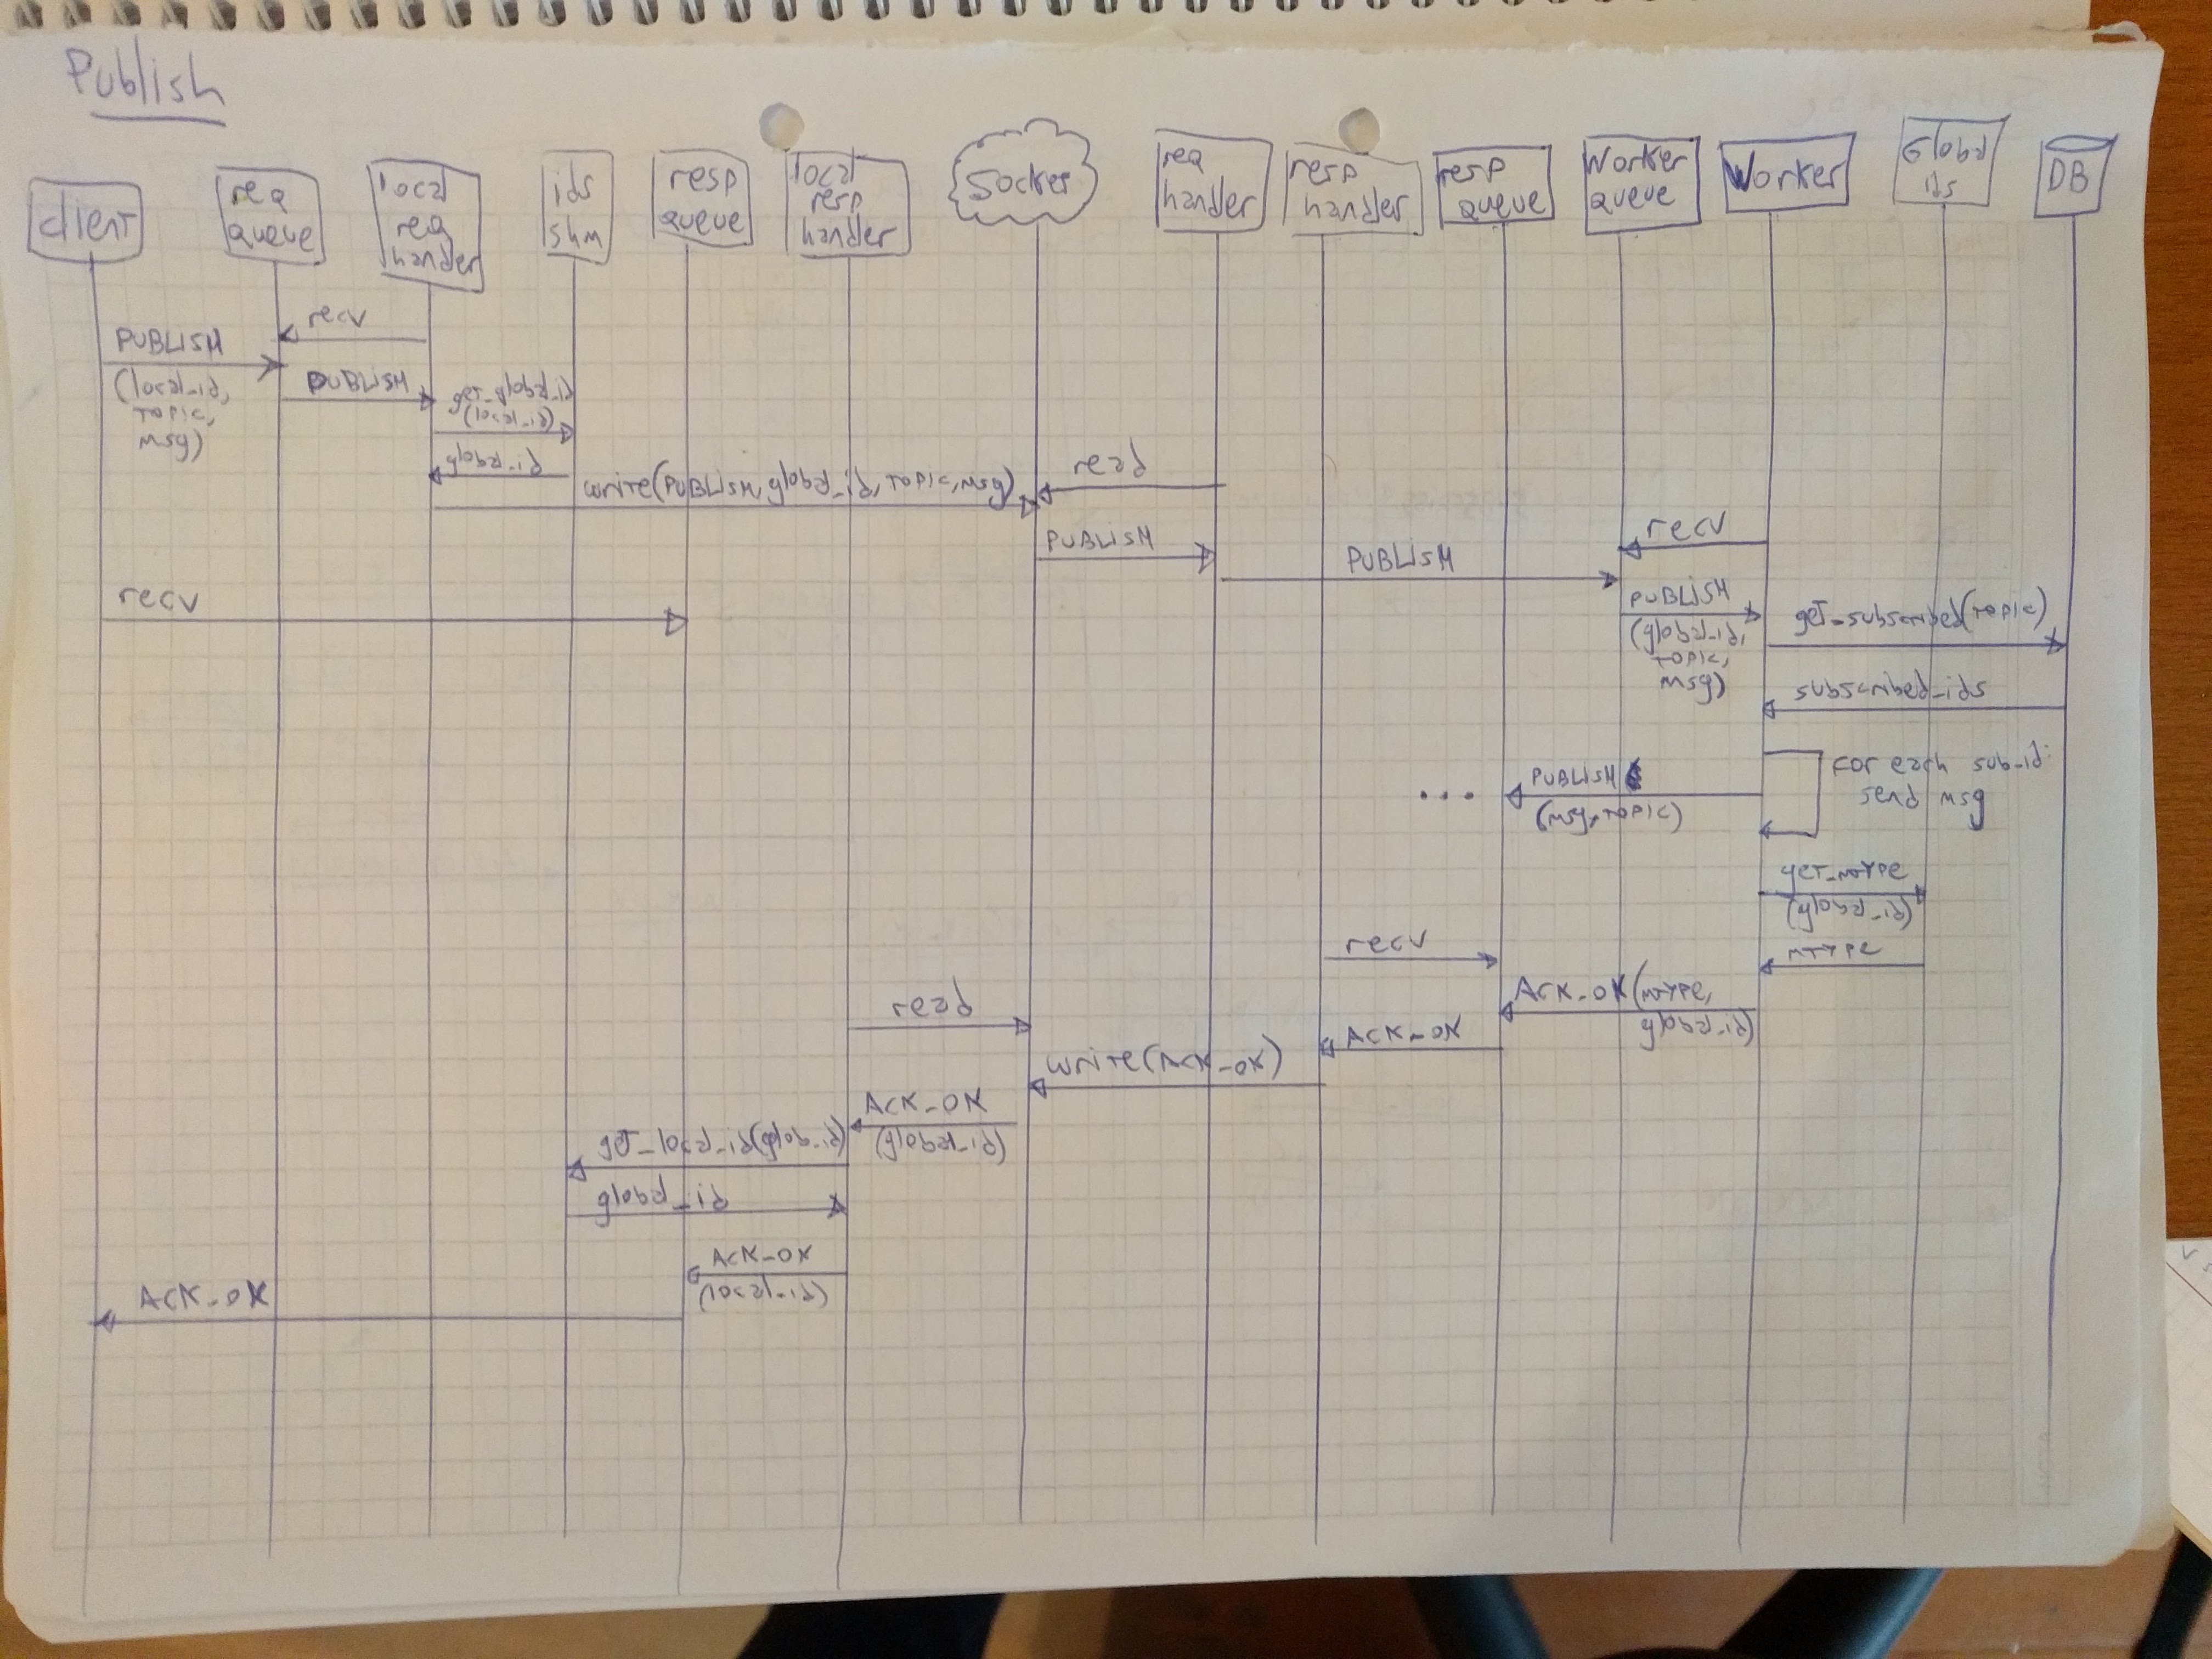 Publish
client
req
queue
local
req
handler
ids
shm
resp
queue
local
resp
handler
Socket
req
handler
resp
handler
resp
queue
Worker
queue
Worker
Global
ids
DB
recv
PUBLISH
(local_id,
topic,
msg)
PUBLISH
get_global_id
(local_id)
global_id
write(PUBLISH, global_id, topic, msg)
read
PUBLISH
PUBLISH
recv
PUBLISH
(global_id,
topic,
msg)
get_subscribed(topic)
recv
subscribed_ids
for each sub_id:
send msg
...
PUBLISH
(msg, topic)
get_mtype
(global_id)
mtype
recv
ACK_OK(mtype,
global_id)
read
ACK_OK
write(ACK_OK)
ACK_OK
(global_id)
get_local_id(glob_id)
global_id
ACK_OK
(local_id)
ACK_OK